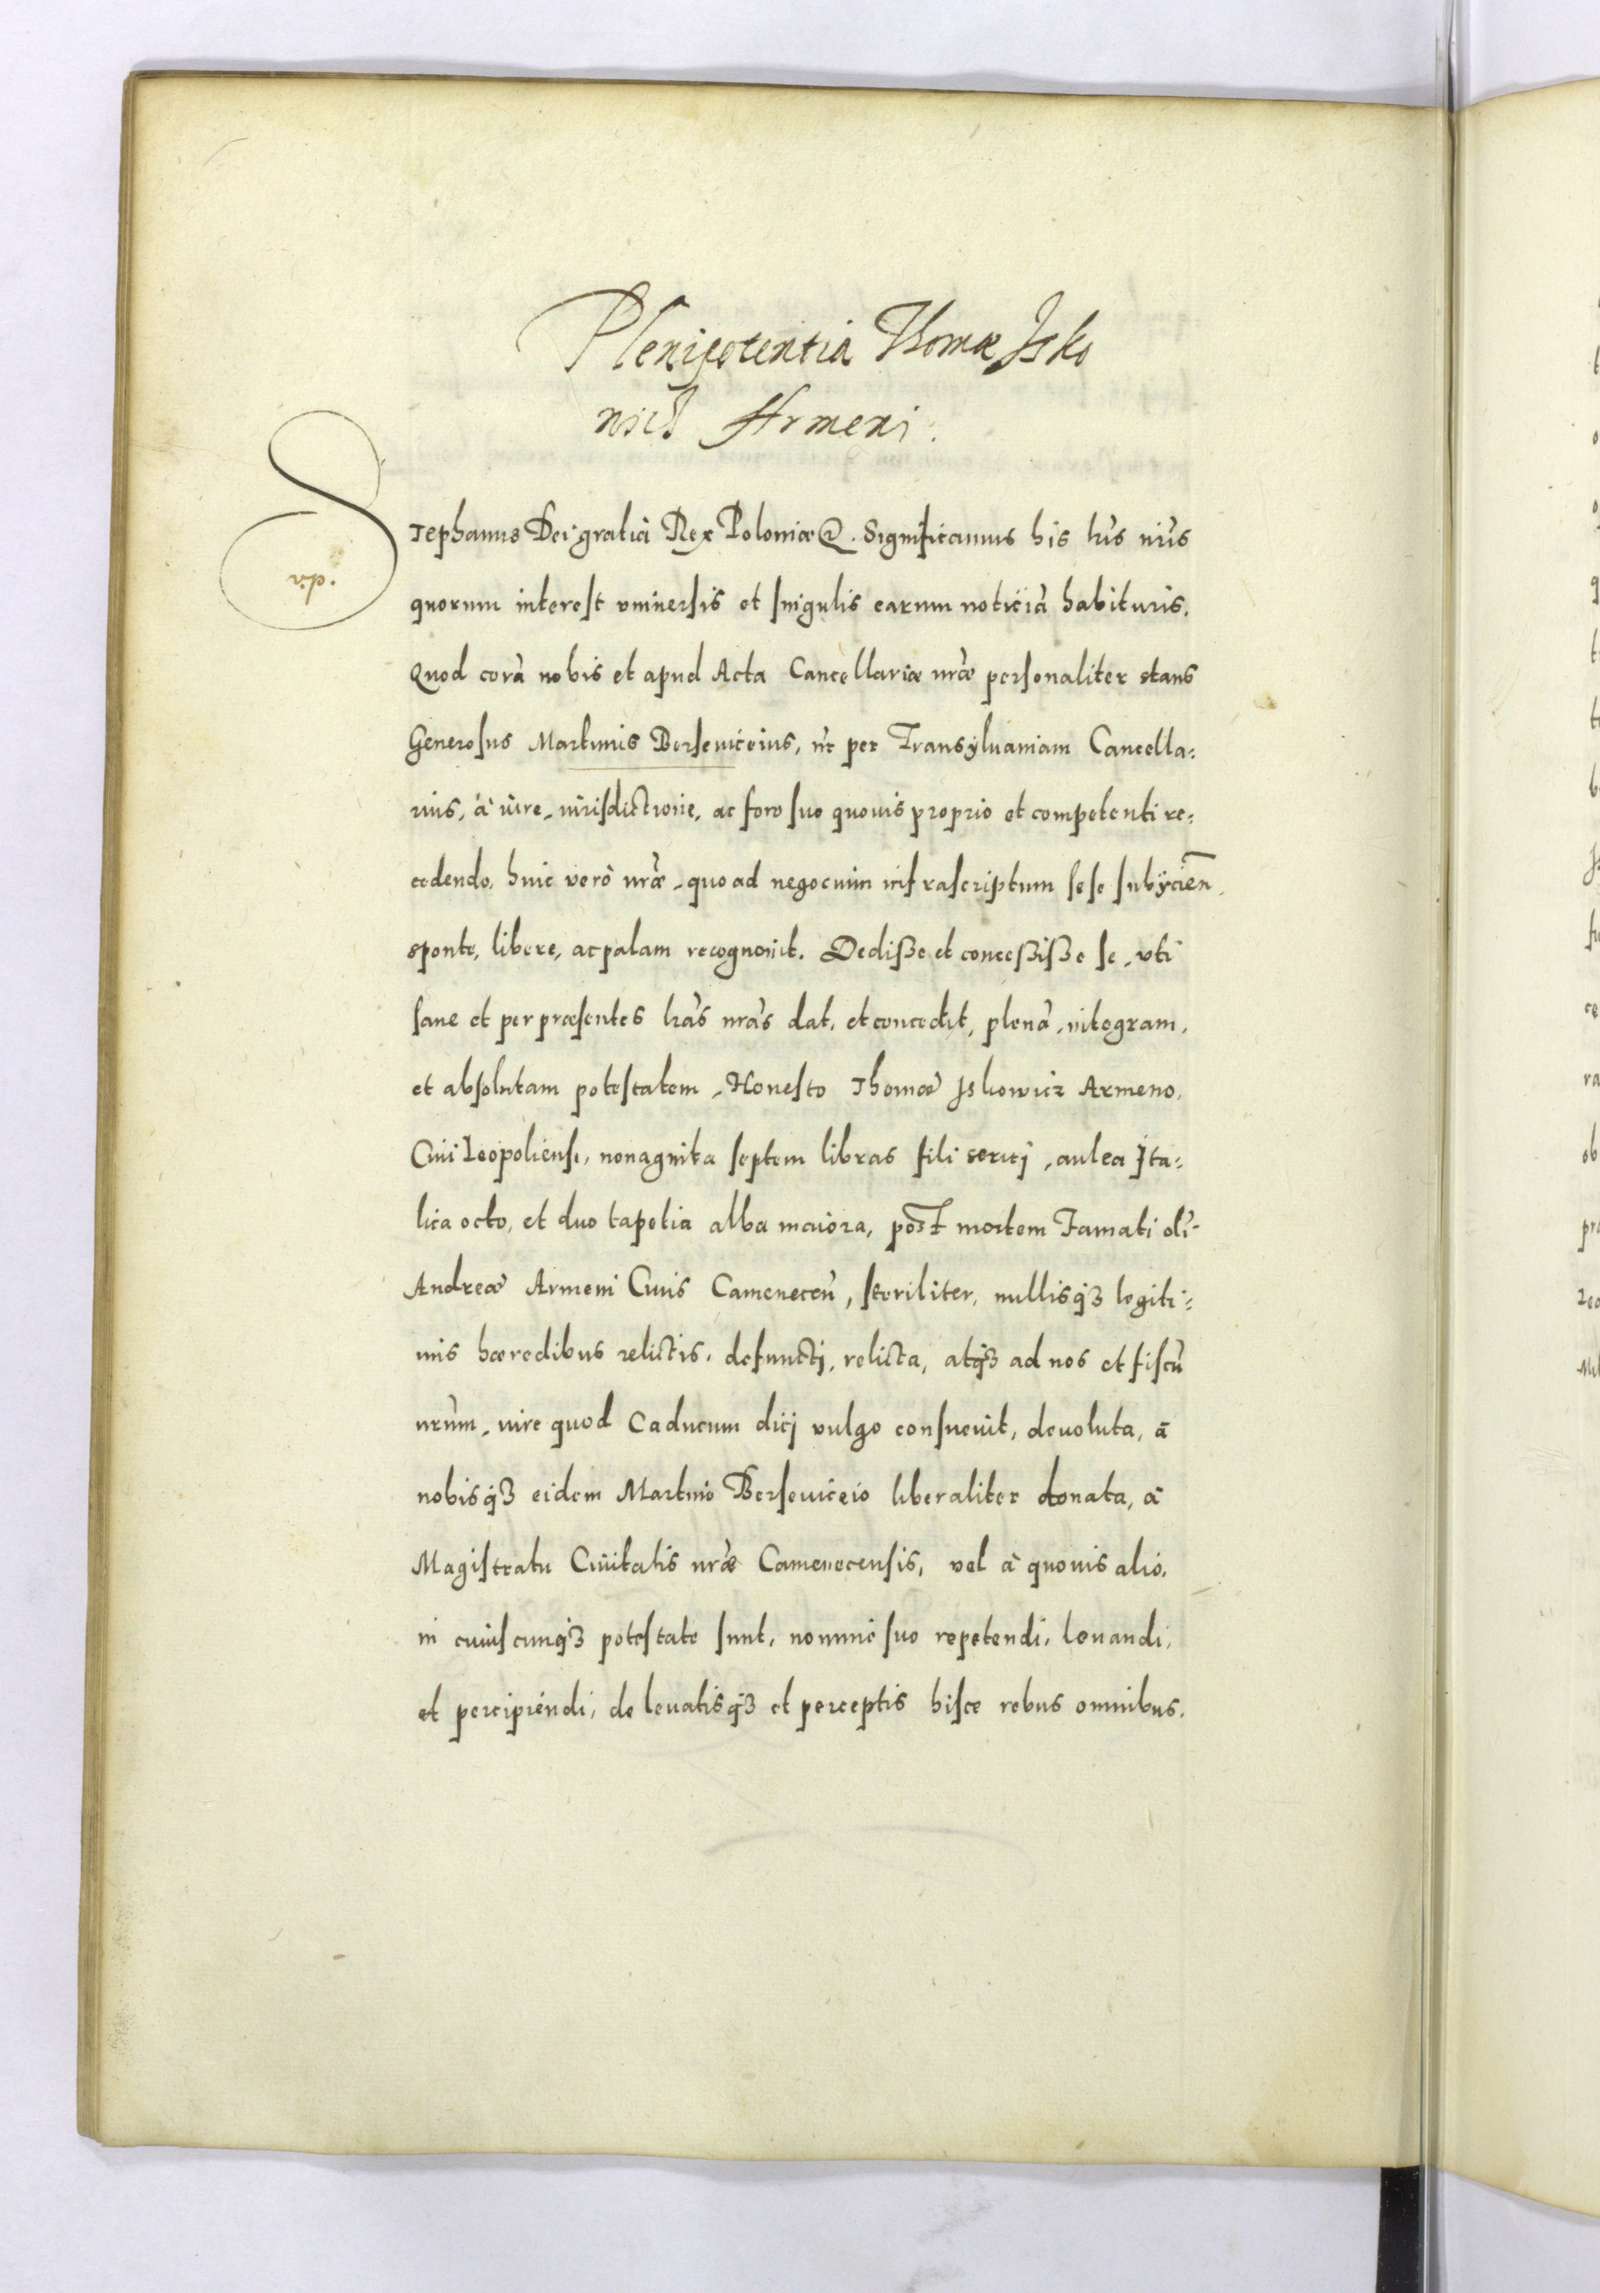 Plenipotentia Thomæ Isko
wicz Armeni.
Stephanus Dei gratiâ Rex Poloniæ &. Significamus his lr̃is nr̃is
quorum interest vniuersis et singulis earum noticiã habituris.
Quod corã nobis et apud Acta Cancellariæ nr̃æ personaliter stans
Generosus Martinus Berseuiceius, nr̃ per Transyluaniam Cancella=
rius, à iure, iurisdictione, ac foro suo quouis proprio et competenti re=
cedendo, huic verò nr̃æ, quo ad negocium infrascriptum sese subijcieñ.
sponte, libere, ac palam recognouit. Dediße et conceßiße se, vti
sane et per præsentes lr̃as nr̃as dat, et concedit, plenã, integram,
et absolutam potestatem, Honesto Thomæ Iskowicz Armeno,
Ciui Leopoliensi, nonaginta septem libras fili serici, aulea Ita=
lica octo, et duo tapetia alba maiora, post mortem Famati olĩ
Andreæ Armeni Ciuis Cameneceñ, steriliter, nullisqꝫ legiti=
mis hæredibus relictis, defuncti, relicta, atqꝫ ad nos et fiscũ
nr̃um, iure quod Caducum dici vulgo consueuit, deuoluta, à
nobisqꝫ eidem Martino Berseuiceio liberaliter donata, à
Magistratu Ciuitatis nr̃æ Camenecensis, vel à quouis alio,
in cuiuscunqꝫ potestate sunt, nomine suo repetendi, leuandi,
et percipiendi, de leuatisqꝫ et perceptis hisce rebus omnibus.